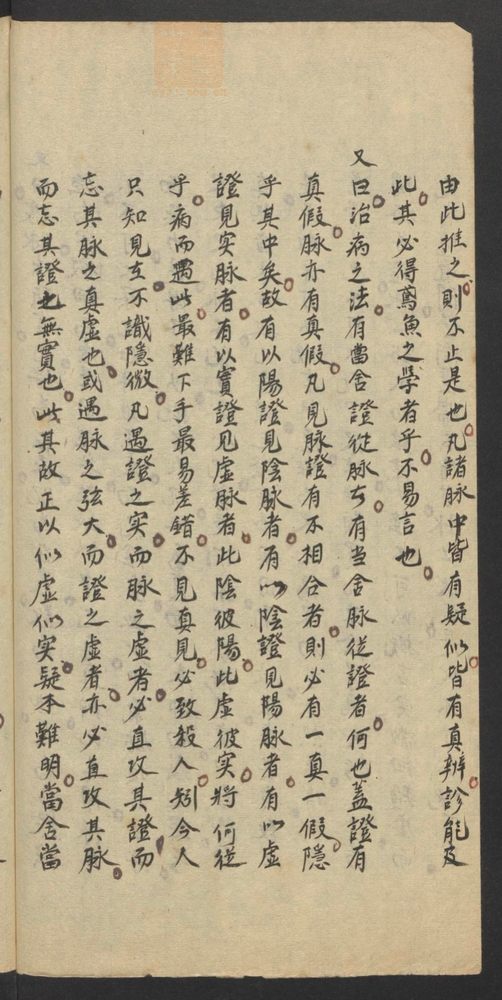 由此推之則不止是也凡諸脉中皆有疑似皆有真辨診能及
此其必得鳶魚之学者乎不易言也
又曰治病之法有當舍證從脉亦有当舍脉從證者何也蓋證有
真假脉亦有真假凡見脉證有不相合者則必有一真一假隱
乎其中矣故有以陽證見陰脉者有以陰證見陽脉者有以虚
證見实脉者有以實證見虚脉者此陰彼陽此虚彼实將何從
乎病而遇此最難下手最易差錯不見真見必致殺人矧今人
只知見在不識隱微凡遇證之实而脉之虚者必直攻其證而
忘其脉之真虚也或遇脉之弦大而證之虚者亦必直攻其脉
而忘其證之無實也此其故正以似虚似实疑本難明當舍當